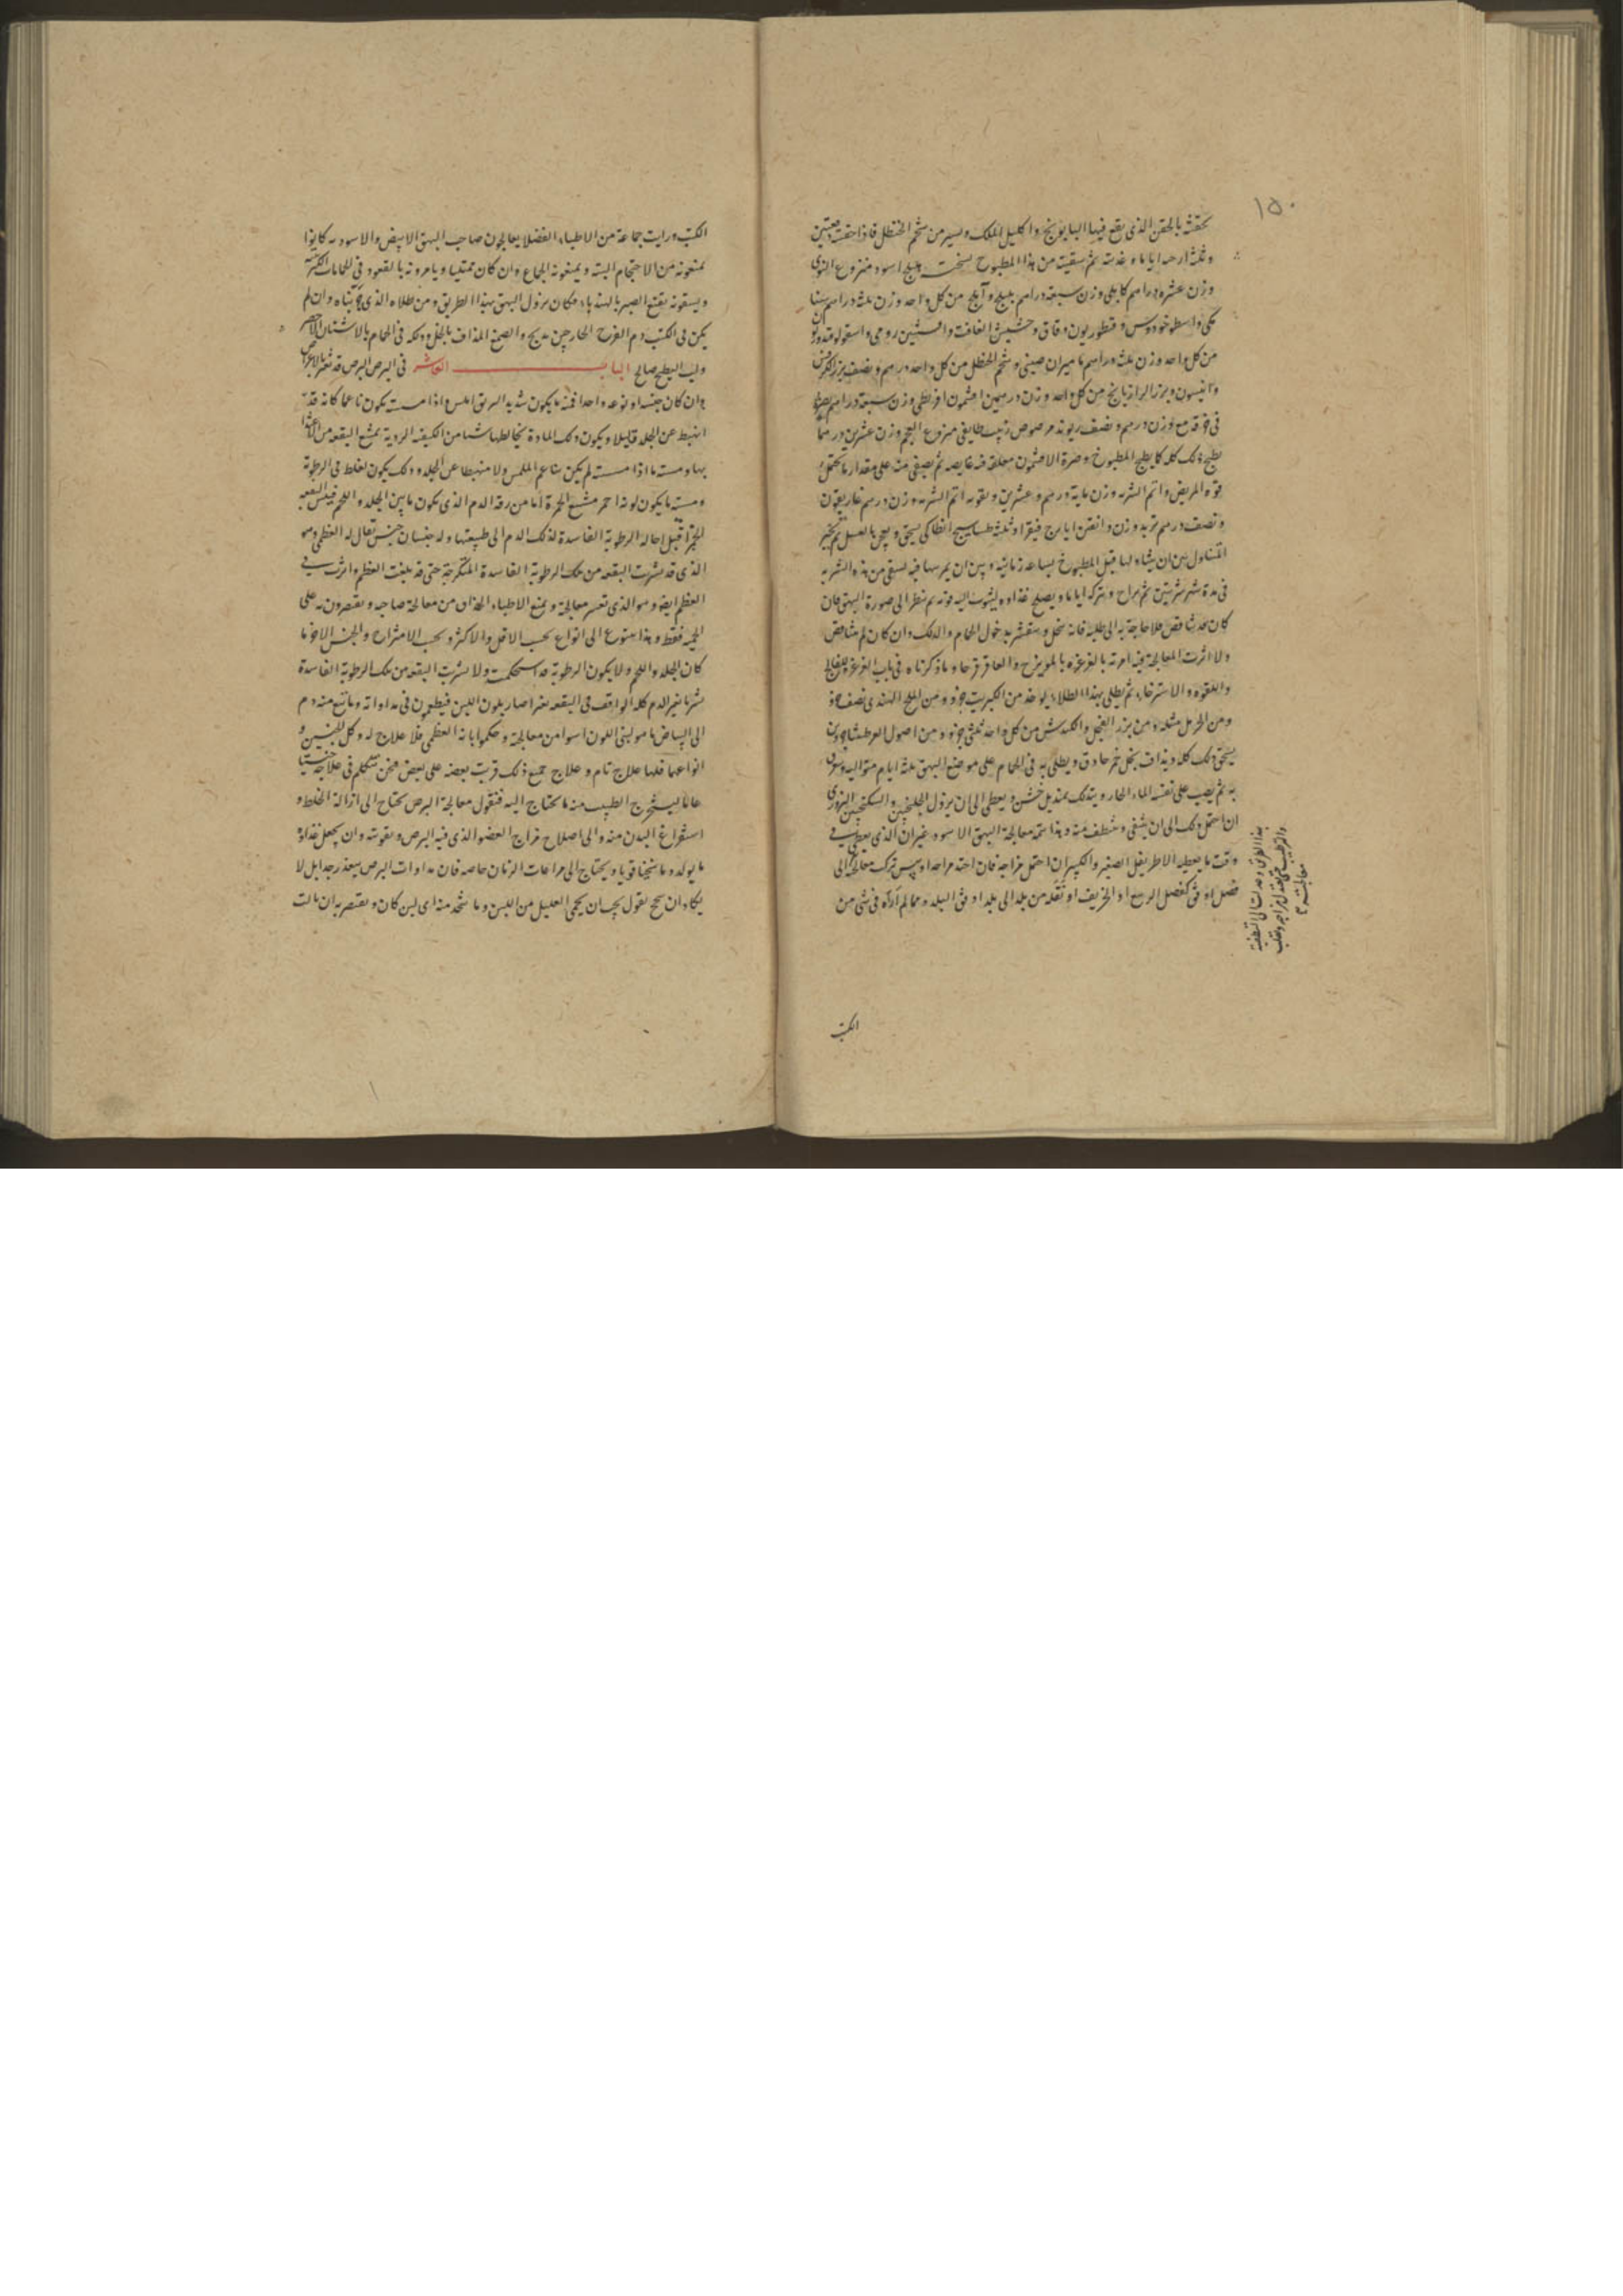 ١٥٠
تحقنه بالحقن الذى يقع فيها البابونج واكليل الملك ويسير من شحم الحنظل فاذا حقنته حقنتين
وثلثة ارحه اياما وغذيته ثم سقيته من هذا المطبوخ نسخته هليلج اسود منزوع النوى
وزن عشرة دراهم كابلى وزن سبعة دراهم بليلج وآملج من كل واحد وزن ثلثة دراهم سنا
مكى واسطوخودوس وقنطوريون دقاق وحشيش الغافت وافسنتين رومى واسقولوقندريون
من كل واحد وزن ثلثة دراهم ماميران صينى وشحم الحنظل من كل واحد درهم ونصف بزر الكرفس
وانيسون وبزر الرازيانج من كل واحد وزن درهمين افتيمون اقريطى وزن سبعة دراهم يصر
فى خرقة مع وزن درهم ونصف ريوند مرضوض زبيب طايفى منزوع العجم وزن عشرين درهما
يطبخ ذلك كله كما يطبخ المطبوخ وصرة الافتيمون معلقة فيه غايصه ثم يصفى منه على مقدار ما يحتمل
قوة المريض واتم الشربه وزن ماية درهم وعشرين وتقويه اتم الشربه وزن درهم غاريقون
ونصف درهم تربد وزن دانقين ايارج فيقرا وثلثة طساسيج انطاكى يسحق ويعجن بالعسل ثم يخير
المتناول بين ان يتناولها قبل المطبوخ بساعة زمانيه وبين ان يمرسها فيه يسقى من هذه الشربه
فى مدة شهر شربتين ثم يراح ويترك اياما ويصلح غذاوه ليثوب اليه قوته ثم ينظر الى صورة البهق فان
كان قد تناقص فلا حاجة به الى طليه فانه ينحل ويتقشر بدخول الحمام والدلك وان كان لم يتناقص
ولا اثرت المعالجة فيه امرته بالغرغره بالمويزج والعاقرقرحا وما ذكرناه فى باب الغرغره للفالج
واللقوه والاسترخاء ثم يطلى بهذا الطلاء يوخذ من الكبريت جزو ومن الملح الهندى نصف جزو
ومن الخردل مثله ومن بزر الفجل والكندش من كل واحد ثلثى جزو ومن اصول العرطنيثا جزوين
يسحق ذلك كله ويذاف بخل خمر حاذق ويطلى به فى الحمام على موضع البهق ثلثة ايام متواليه ويعرق
به ثم يصب على نفسه الماء الحار ويتدلك بمنديل خشن ويعطى الى ان يزول الجلنجبين والسكنجبين البزورى
ان احتمل ذلك الى ان ينقى وينظف منه وهذا سمة معالجة البهق الاسود غير ان الذى يعطى فى
وقت ما يعطيه الاطريفل الصغير والكبير ان احتمل مزاجه فان احتد مزاجه او يبس ترك معالجته الى
فصل اوفق كفصل الربيع او الخريف او نقله من بلد الى بلد اوفق البلد ومما لم اراه فى شى من
هذا الطريق وعدلت الى تنظفه
والترطيب حتى يعتدل مزاجه وتغلب
معالجته
الكتب
الكتب ورايت جماعة من الاطباء الفضلا يعالجون صاحب البهق الابيض والاسود به كانوا
يمنعونه من الاحتجام البته ويمنعونه الجماع وان كان ممتليا ويامرونه بالقعود فى الحمامات الكبريتيه
ويسقونه نقيع الصبر بالهندباء فكان يزول البهق بهذا الطريق ومن طلاه الذى كتبناه وان لم
يكن فى الكتب دم الفرخ الحار حين يذبح والصمغ المذاف بالخل ودلكه فى الحمام بالاشنان الاخضر
ولب البطيخ صالح الباب العاشر فى البرص البرص قد تتغير الاعراض
وان كان جنسه او نوعه واحدا فمنه ما يكون شديد البريق املس واذا مسسته يكون ناعما كانه قد
انهبط عن الجلد قليلا ويكون ذلك المادة يخالطها شيا من الكيفية الردية
بها ومنه ما اذا مسسته لم يكن بناعم الملمس ولا منهبطا عن الجلد وذلك يكون لغلظ فى الرطوبة
ومنه ما يكون لونه احمر مشبع الحمرة اما من رقة الدم الذى يكون ما بين الجلد واللحم
قبل احالة الرطوبة الفاسدة لذلك الدم الى طبيعتها وله جنسان جنس يقال له العظمى وهو
الذى قد شربت البقعة من تلك الرطوبة الفاسدة المتكرجة حتى قد بلغت العظم واثرت فى
العظم ايضا وهو الذى تعسر معالجته ويمنع الاطباء الحذاق من معالجة صاحبه ويقتصرون به على
الحميه فقط وهذا يتنوع الى انواع بحسب الاقل والاكثر وبحسب الامتزاج والجنس الاخر ما
كان الجلد واللحم ولا يكون الرطوبة قد استحكمت ولا شربت البقعة من تلك الرطوبة الفاسدة
شربا يتغير الدم كله الواقف فى البقعة تغيرا صار بلون اللبن فيطمعون فى مداواته وما نبع منه دم
الى البياض ما هو لبنى اللون ايسوا من معالجته وحكموا بانه العظمى فلا علاج له وكل الجنسين و
انواعهما فلها علاج تام وعلاج جميع ذلك قريب بعضه على بعض فنحن نتكلم فى علاجه
عاما ليستخرج الطبيب منه ما يحتاج اليه فنقول معالجة البرص يحتاج الى ازالة الخلط و
استفراغ البدن منه والى اصلاح مزاج العضو الذى فيه البرص وتقويته وان يجعل غذاؤه
ما يولد دما سخنا قويا ويحتاج الى مراعات الزمان خاصة فان مداوات البرص يتعذر جدا بل لا
يكاد ان ينجح نقول يجب ان يحمى العليل من اللبن وما يتخذ منه اى لبن كان ويقتصر به ان مالت